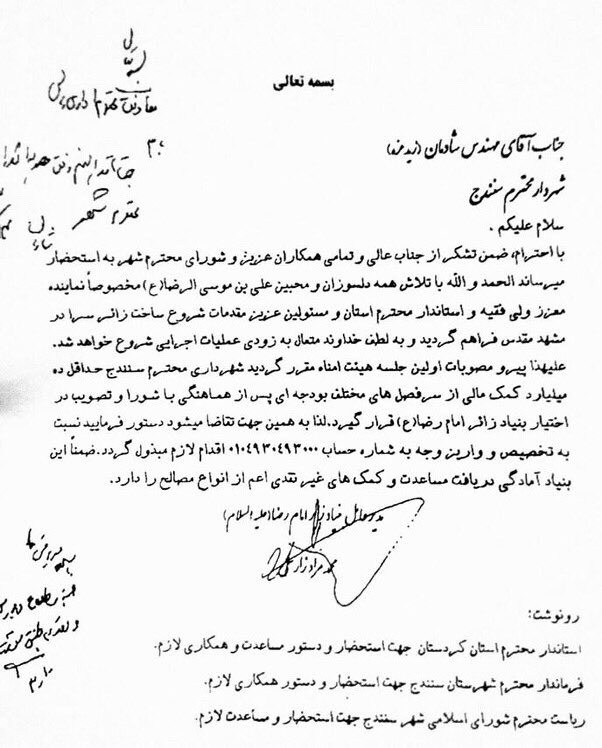 بسمه تعالی
معاونت محترم
جناب آقای مهندس شادمان (زید عزه)
شهردار محترم سنندج
سلام علیکم .
با احترام، ضمن تشکر از جناب عالی و تمامی همکاران عزیز و شورای محترم شهر به استحضار
میرساند الحمد و الله با تلاش همه دلسوزان و محبین علی بن موسی الرضا(ع) مخصوصاً نماینده
معزز ولی فقیه و استاندار محترم استان و مسئولین عزیز مقدمات شروع ساخت زائر سرا در
مشهد مقدس فراهم گردید و به لطف خداوند متعال به زودی عملیات اجرایی شروع خواهد شد.
علیهذا پیرو مصوبات اولین جلسه هیئت امناء مقرر گردید شهرداری محترم سنندج حداقل ده
میلیارد کمک مالی از سرفصل های مختلف بودجه ای پس از هماهنگی با شورا و تصویب در
اختیار بنیاد زائر امام رضا(ع) قرار گیرد.لذا به همین جهت تقاضا میشود دستور فرمایید نسبت
به تخصیص و واریز وجه به شماره حساب ۰۱۰۴۹۳۰۴۹۳۰۰۰ اقدام لازم مبذول گردد.ضمناً این
بنیاد آمادگی دریافت مساعدت و کمک های غیر نقدی اعم از انواع مصالح را دارد.
مدیرعامل بنیاد زائر امام رضا(علیه السلام)
محمد مراد
رونوشت:
استاندار محترم استان کردستان جهت استحضار و دستور مساعدت و همکاری لازم.
فرماندار محترم شهرستان سنندج جهت استحضار و دستور همکاری لازم.
ریاست محترم شورای اسلامی شهر سنندج جهت استحضار و مساعدت لازم.